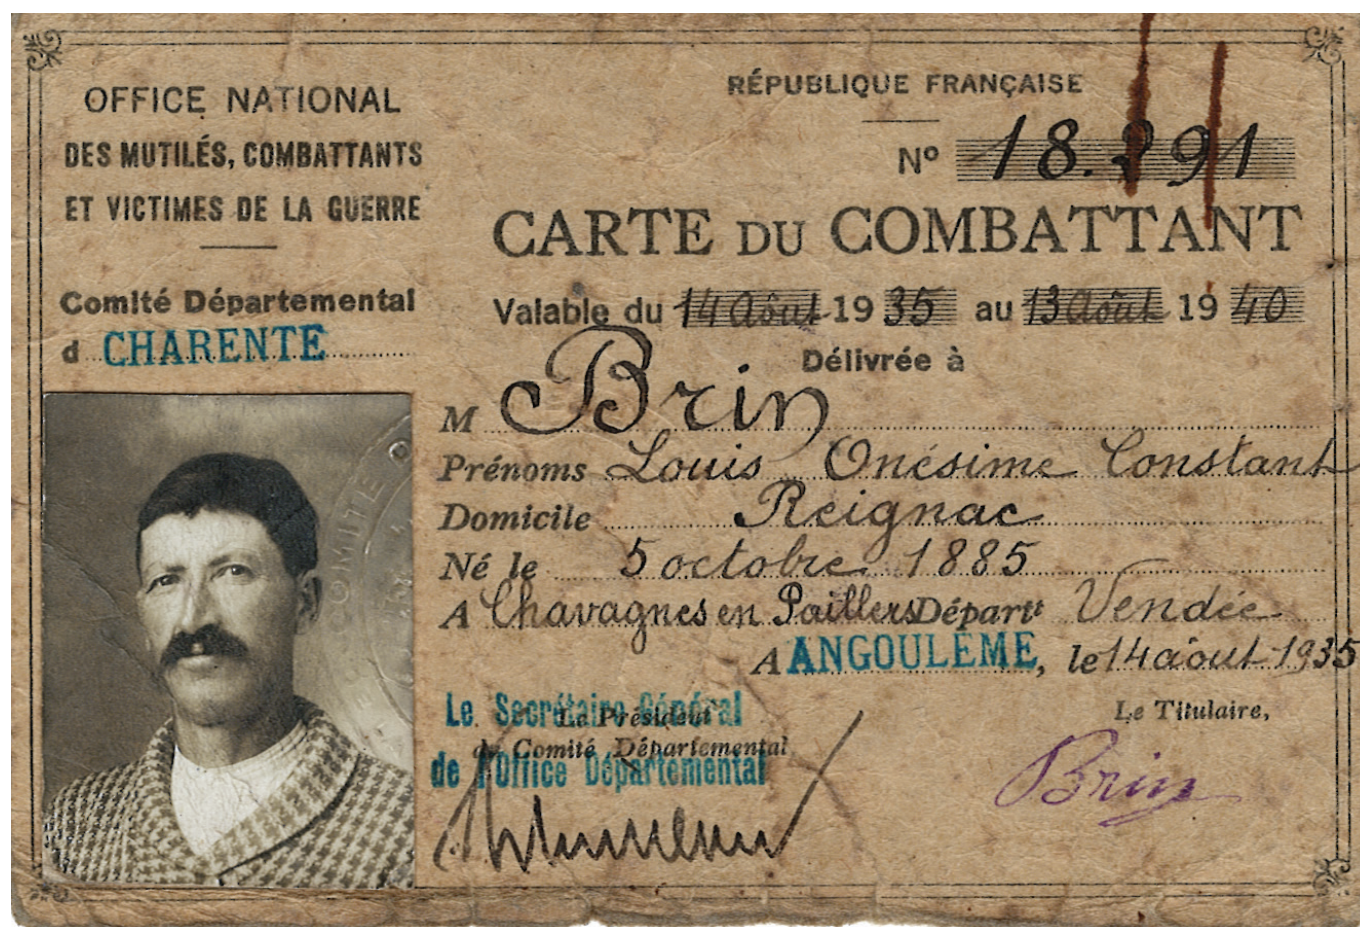 OFFICE NATIONAL
DES MUTILÉS, COMBATTANTS
ET VICTIMES DE LA GUERRE
Comité Départemental
d CHARENTE
RÉPUBLIQUE FRANÇAISE
N° 18.291
CARTE DU COMBATTANT
Valable du 14 Août 1935 au 13 Août 1940
Délivrée à
M Brin
Prénoms Louis Onésime Constant
Domicile Reignac
Né le 5 octobre 1885
A Chavagnes en Paillers Départt Vendée
A ANGOULÊME, le 14 août 1935
Le Secrétaire Général
Le Président
du Comité Départemental
de l'Office Départemental
Le Titulaire,
Brin
COMITÉ